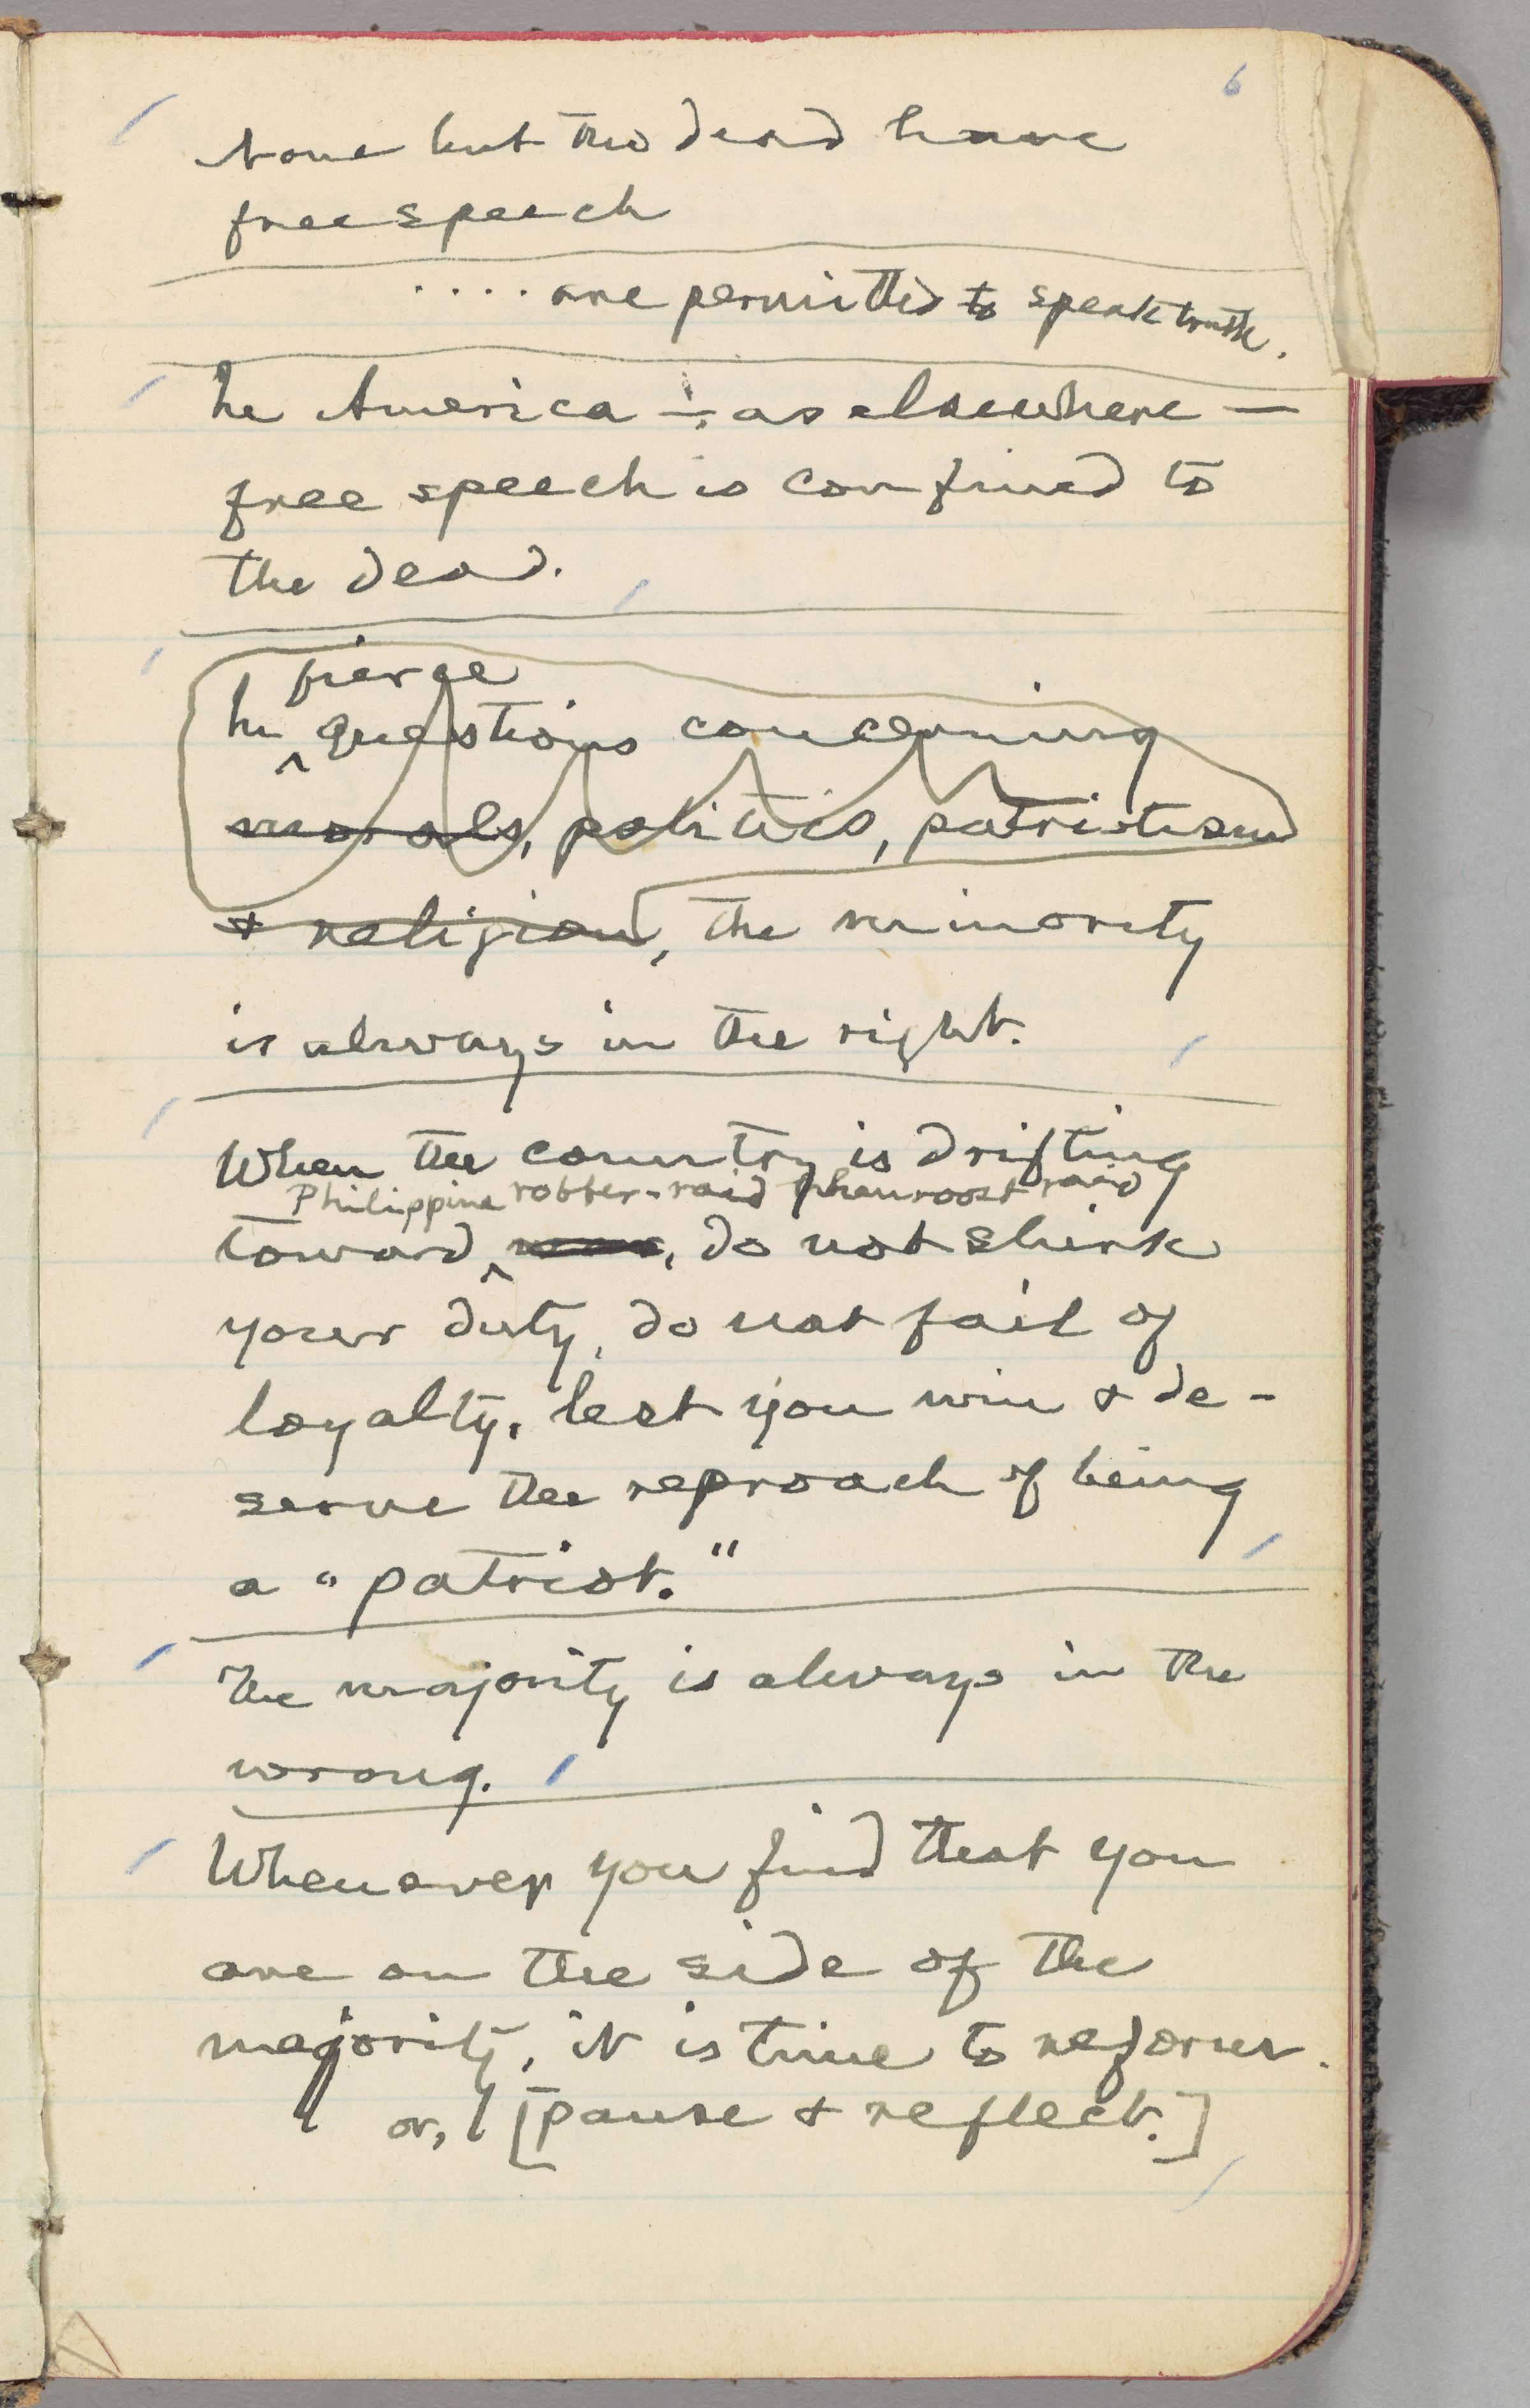 6
None but the dead have
free speech
. . . . are permitted to speak truth.
In America — as elsewhere —
free speech is confined to
the dead.
fierce
In ^ questions concerning
morals, politics, patriotism
& religion, the minority
is always in the right.
When the country is drifting
Philippine robber-raid henroost raid
toward ^ war, do not shirk
your duty, do not fail of
loyalty, lest you win & de-
serve the reproach of being
a "patriot."
The majority is always in the
wrong.
Whenever you find that you
are on the side of the
majority, it is time to reform.
or, [pause & reflect.]